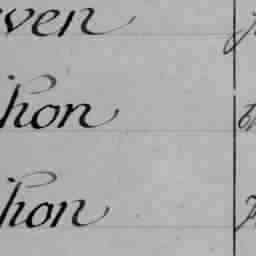 ven
hon
hon